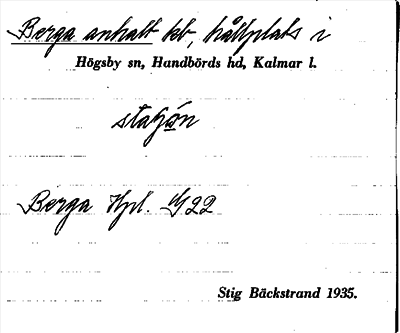 Berga anhalt kb, hållplats i
Högsby sn, Handbörds hd, Kalmar l.
Berga Hpl. G22
Stig Bäckstrand 1935.